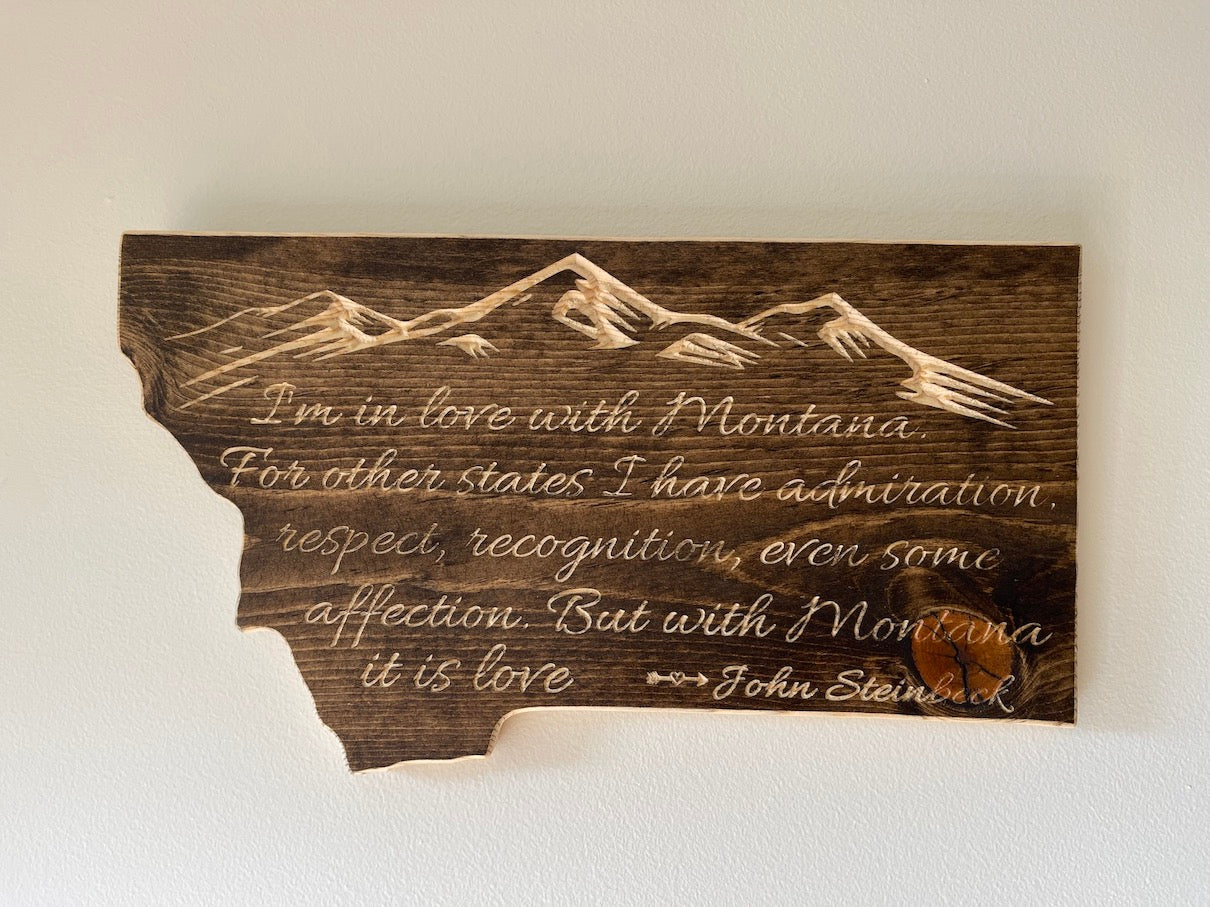 I'm in love with Montana.
For other states I have admiration,
respect, recognition, even some
affection. But with Montana
it is love
John Steinbeck